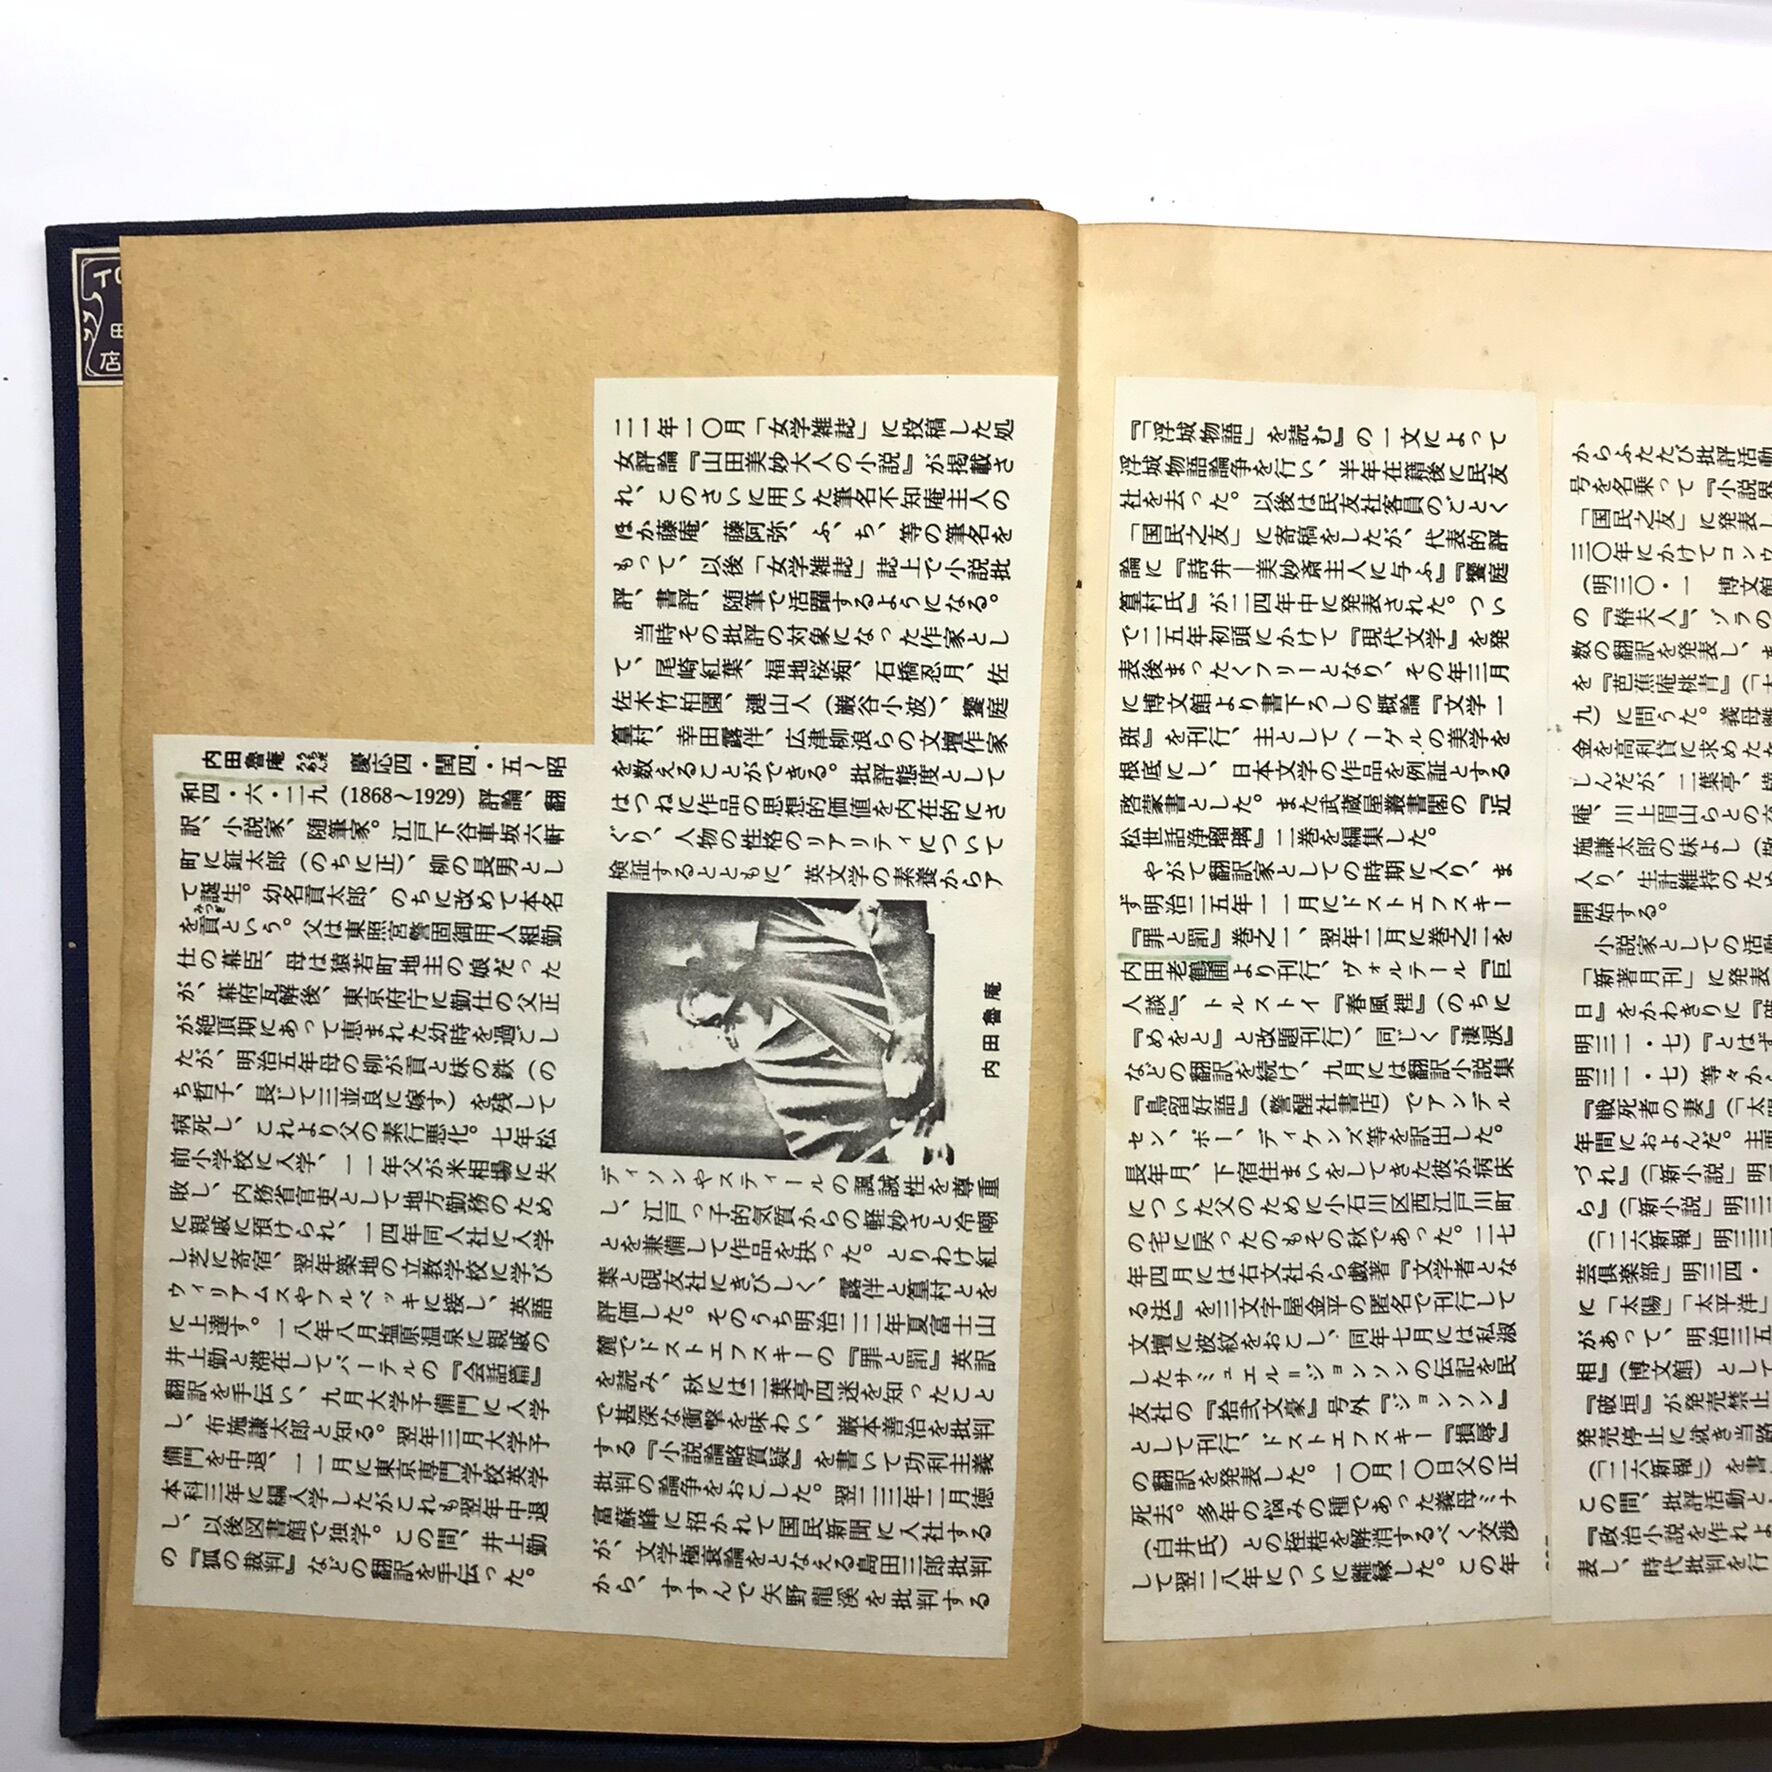 内田魯庵 うちだろあん 慶応四・閏四・五〜昭
和四・六・二九(1868〜1929) 評論、翻
訳、小説家、随筆家。江戸下谷車坂六軒
町に鉦太郎(のちに正)、柳の長男とし
て誕生。幼名貢太郎、のちに改めて本名
を貢みつぎという。父は東照宮警固御用人組勤
仕の幕臣、母は猿若町地主の娘だった
が、幕府瓦解後、東京府庁に勤仕の父正
が絶頂期にあって恵まれた幼時を過ごし
たが、明治五年母の柳が貢と妹の鉄(の
ち哲子、長じて三並良に嫁す)を残して
病死し、これより父の素行悪化。七年松
前小学校に入学、一一年父が米相場に失
敗し、内務省官吏として地方勤務のため
に親戚に預けられ、一四年同人社に入学
し芝に寄宿、翌年築地の立教学校に学び
ウィリアムスやフルベッキに接し、英語
に上達す。一八年八月塩原温泉に親戚の
井上勤と滞在してバーテルの『会話篇』
翻訳を手伝い、九月大学予備門に入学
し、布施謙太郎と知る。翌年三月大学予
備門を中退、一一月に東京専門学校英学
本科三年に編入学したがこれも翌年中退
し、以後図書館で独学。この間、井上勤
の『狐の裁判』などの翻訳を手伝った。
二一年一〇月「女学雑誌」に投稿した処
女評論『山田美妙大人の小説』が掲載さ
れ、このさいに用いた筆名不知庵主人の
ほか藤庵、藤阿弥、ふ、ち、等の筆名を
もって、以後「女学雑誌」誌上で小説批
評、書評、随筆で活躍するようになる。
当時その批評の対象になった作家とし
て、尾崎紅葉、福地桜痴、石橋忍月、佐
佐木竹柏園、漣山人(巌谷小波)、饗庭
篁村、幸田露伴、広津柳浪らの文壇作家
を数えることができる。批評態度として
はつねに作品の思想的価値を内在的にさ
ぐり、人物の性格のリアリティについて
検証するとともに、英文学の素養からア
内田魯庵
ディソンやスティールの諷誡性を尊重
し、江戸っ子的気質からの軽妙さと冷嘲
とを兼備して作品を抉った。とりわけ紅
葉と硯友社にきびしく、露伴と篁村とを
評価した。そのうち明治二二年夏富士山
麓でドストエフスキーの『罪と罰』英訳
を読み、秋には二葉亭四迷を知ったこと
で甚深な衝撃を味わい、巌本善治を批判
する『小説論略質疑』を書いて功利主義
批判の論争をおこした。翌二三年二月徳
富蘇峰に招かれて国民新聞に入社する
が、文学極衰論をとなえる島田三郎批判
から、すすんで矢野龍渓を批判する
『「浮城物語」を読む』の一文によって
浮城物語論争を行い、半年在籍後に民友
社を去った。以後は民友社客員のごとく
「国民之友」に寄稿をしたが、代表的評
論に『詩弁―美妙斎主人に与ふ』『饗庭
篁村氏』が二四年中に発表された。つい
で二五年初頭にかけて『現代文学』を発
表後まったくフリーとなり、その年三月
に博文館より書下ろしの概論『文学一
斑』を刊行、主としてヘーゲルの美学を
根底にし、日本文学の作品を例証とする
啓蒙書とした。また武蔵屋叢書閣の『近
松世話浄瑠璃』二巻を編集した。
やがて翻訳家としての時期に入り、ま
ず明治二五年一一月にドストエフスキー
『罪と罰』巻之一、翌年二月に巻之二を
内田老鶴圃より刊行、ヴォルテール『巨
人談』、トルストイ『春風裡』(のちに
『めをと』と改題刊行)、同じく『凄涙』
などの翻訳を続け、九月には翻訳小説集
『鳥留好語』(警醒社書店)でアンデル
セン、ポー、ディケンズ等を訳出した。
長年月、下宿住まいをしてきた彼が病床
についた父のために小石川区西江戸川町
の宅に戻ったのもその秋であった。二七
年四月には右文社から戯著『文学者とな
る法』を三文字屋金平の匿名で刊行して
文壇に波紋をおこし、同年七月には私淑
したサミュエル=ジョンソンの伝記を民
友社の『拾弐文豪』号外『ジョンソン』
として刊行、ドストエフスキー『損辱』
の翻訳を発表した。一〇月一〇日父の正
死去。多年の悩みの種であった義母ミナ
(白井氏)との桎梏を解消するべく交渉
して翌二八年についに離縁した。この年
からふたたび批評活動
号を名乗って『小説界
「国民之友」に発表し
三〇年にかけてコンウ
(明三〇・一 博文館
の『椿夫人』、ゾラの
数の翻訳を発表し、ま
を『芭蕉庵桃青』(「太
九)に問うた。義母離
金を高利貸に求めたた
しんだが、二葉亭、横
庵、川上眉山らとの交
施謙太郎の妹よし(
入り、生計維持のため
開始する。
小説家としての活動
「新著月刊」に発表
日』をかわきりに『
明三一・七)『とはず
明三一・七)等々から
『戦死者の妻』(「太陽
年間におよんだ。主要
づれ』(「新小説」明
ら』(「新小説」明三
(「二六新報」明三三
芸倶楽部」明三四・
に「太陽」「太平洋」
があって、明治三五
相』(博文館)として
『破垣』が発売禁止
発売停止に就き当路
(「二六新報」)を書
この間、批評活動と
『政治小説を作れよ
表し、時代批判を行